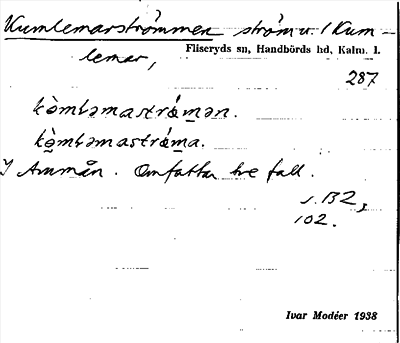 Kumlemarströmmen ström u. / Kum-
Fliseryds sn, Handbörds hd, Kalm. l.
lemar,
287
kòmləmastrǿmən.
kòmləmastrǿma.
I Ammån. Omfattar tre fall.
s. 132,
102.
Ivar Modéer 1938